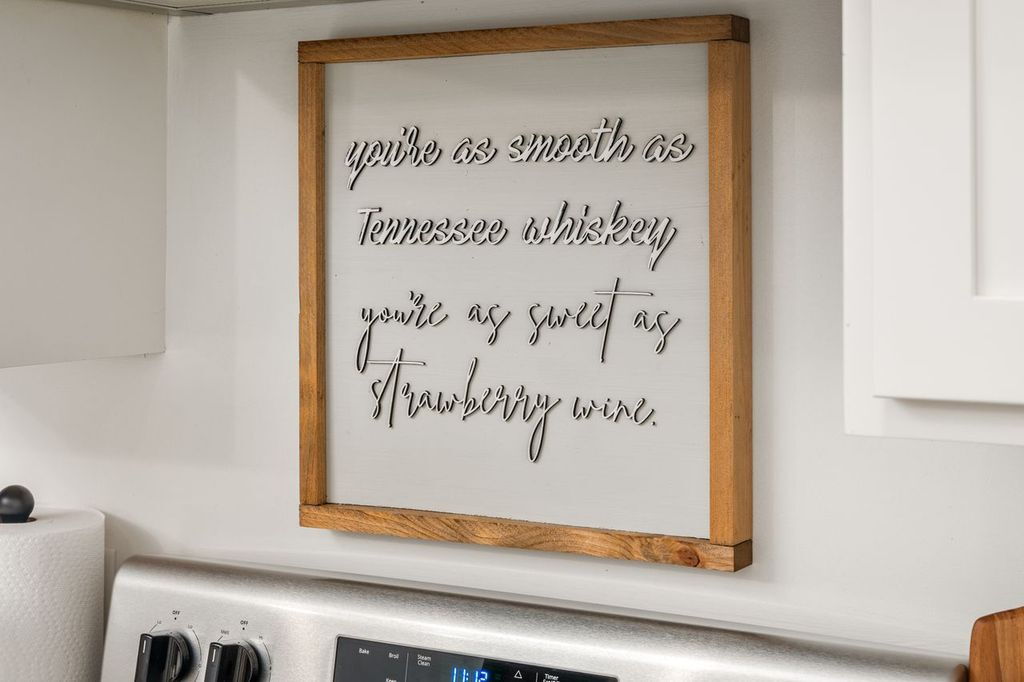 you're as smooth as
Tennessee whiskey
you're as sweet as
strawberry wine.
OFF
Lo
OFF
Melt
Hi
Bake
Broil
Steam
Clean
Keep
11:12
Timer